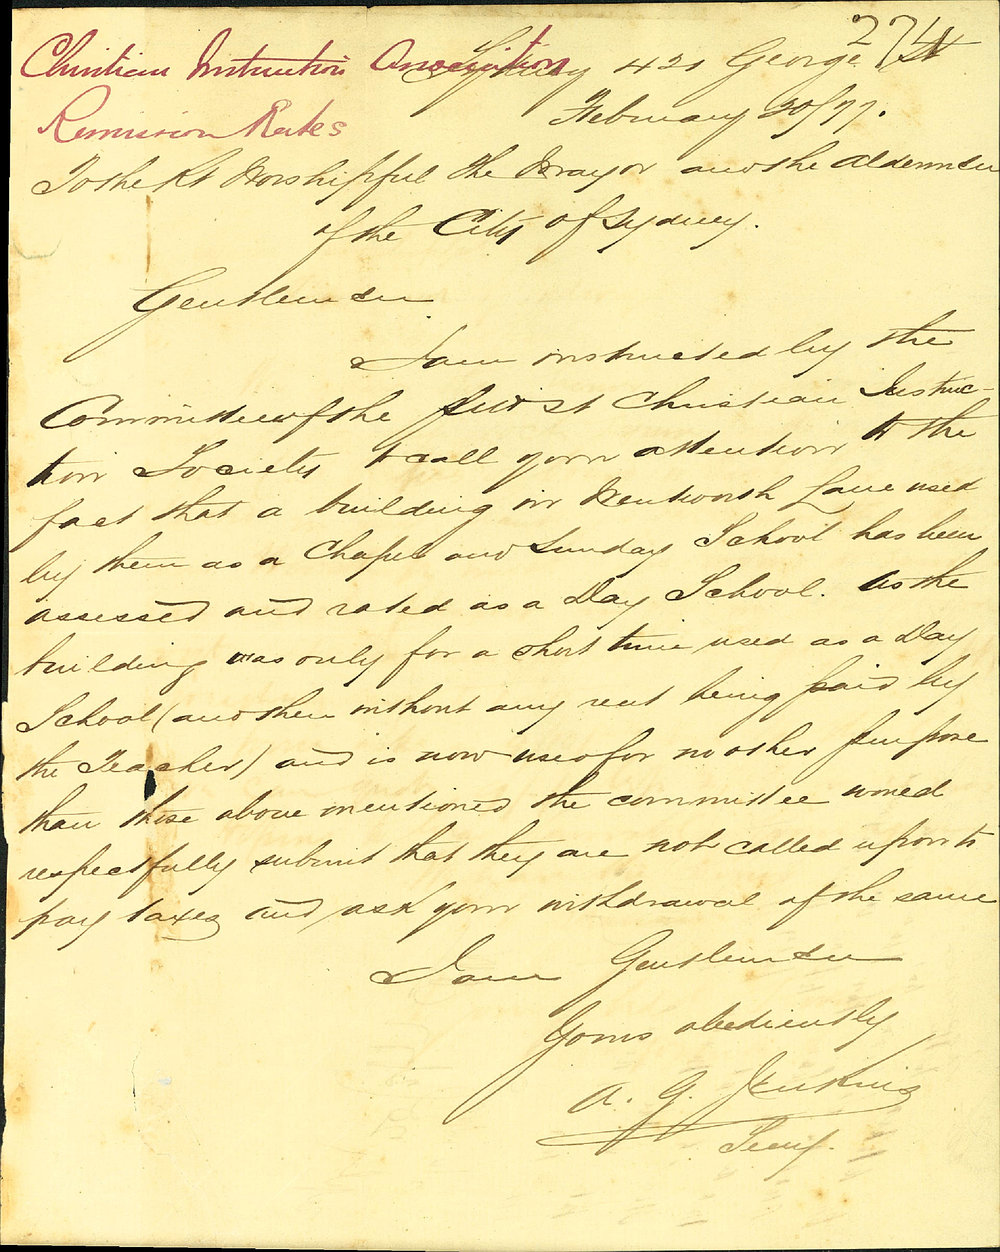 274
Christian Instruction Association
Sydney 421 George St
Remission Rates
February 20/77.
To the Rt Worshipful the Mayor and the Aldermen
of the City of Sydney.
Gentlemen
I am instructed by the
Committee of the Christian Instruc-
tion Society to call your attention to the
fact that a building in Wentworth Lane used
by them as a Chapel and Sunday School has been
assessed and rated as a Day School. As the
building was only for a short time used as a Day
School (and then without any rent being paid by
the Teacher) and is now used for no other purpose
than those above mentioned the committee would
respectfully submit that they are not called upon to
pay taxes and ask your withdrawal of the same
I am Gentlemen
Yours obediently
A. G. Jenkins
Secy.